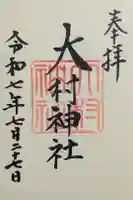 奉拝
大村神社
令和七年七月二十七日